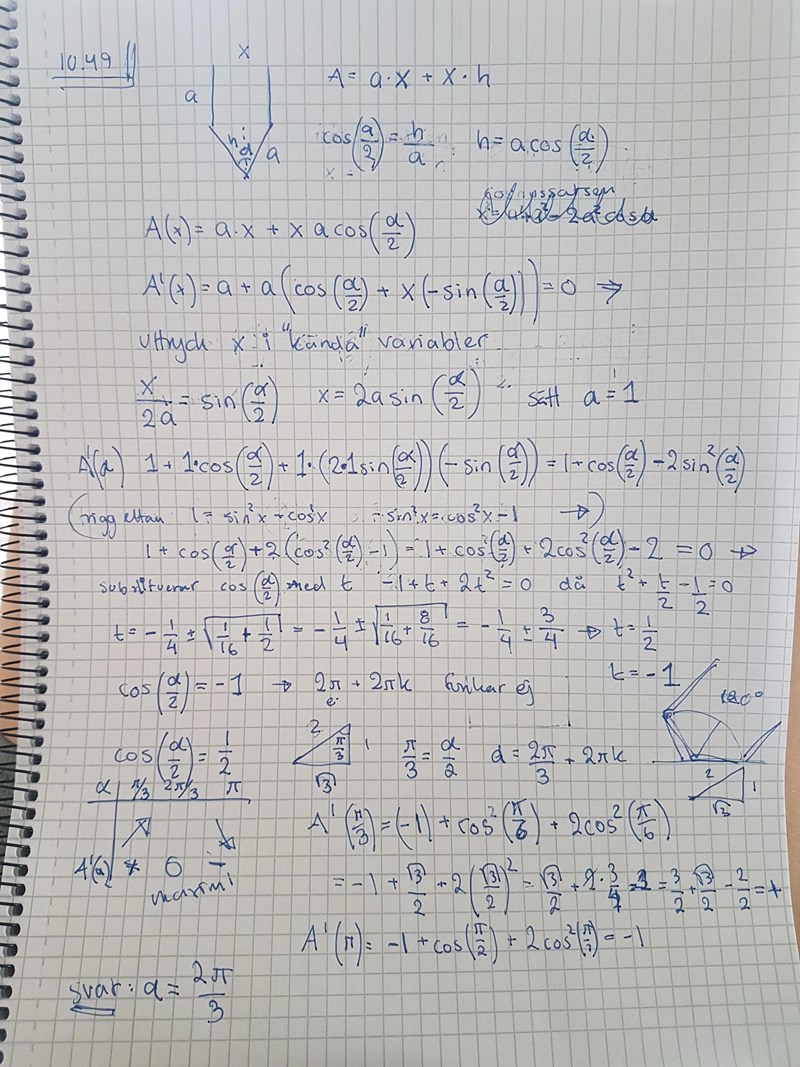 10.49
x
a
h
α
a
A = a·x + x·h
cos(a/2) = h/a ; h = a cos(α/2)
A(x) = a·x + x a cos(α/2)
A'(x) = a + a(cos(α/2) + x(-sin(α/2))) = 0 ⇒
uttryck x i "kända" variabler
x/2a = sin(α/2) x = 2a sin(α/2) sätt a = 1
A'(α) 1 + 1·cos(α/2) + 1·(2·1 sin(α/2))(-sin(α/2)) = 1 + cos(α/2) - 2 sin²(α/2)
(trigg ettan 1 = sin²x + cos²x -sin²x = cos²x - 1 →)
1 + cos(α/2) + 2(cos²(α/2) - 1) = 1 + cos(α/2) + 2cos²(α/2) - 2 = 0 →
substituerar cos(α/2) med t -1 + t + 2t² = 0 då t² + t/2 - 1/2 = 0
t = -1/4 ± √(1/16 + 1/2) = -1/4 ± √(1/16 + 8/16) = -1/4 ± 3/4 → t = 1/2
t = -1
cos(α/2) = -1 → 2π + 2πk funkar ej
180°
cos(α/2) = 1/2
2
π/3
1
√3
π/3 = α/2 α = 2π/3 + 2πk
2
1
√3
α π/3 2π/3 π
↗ ↘
A'(α) + 0 -
maximi
A'(π/3) = (-1) + cos²(π/6) + 2cos²(π/6)
= -1 + √3/2 + 2(√3/2)² = √3/2 + 2·3/4 - 1 = 3/2 + √3/2 - 2/2 = +
A'(π) = -1 + cos(π/2) + 2cos²(π/2) = -1
svar: α = 2π/3